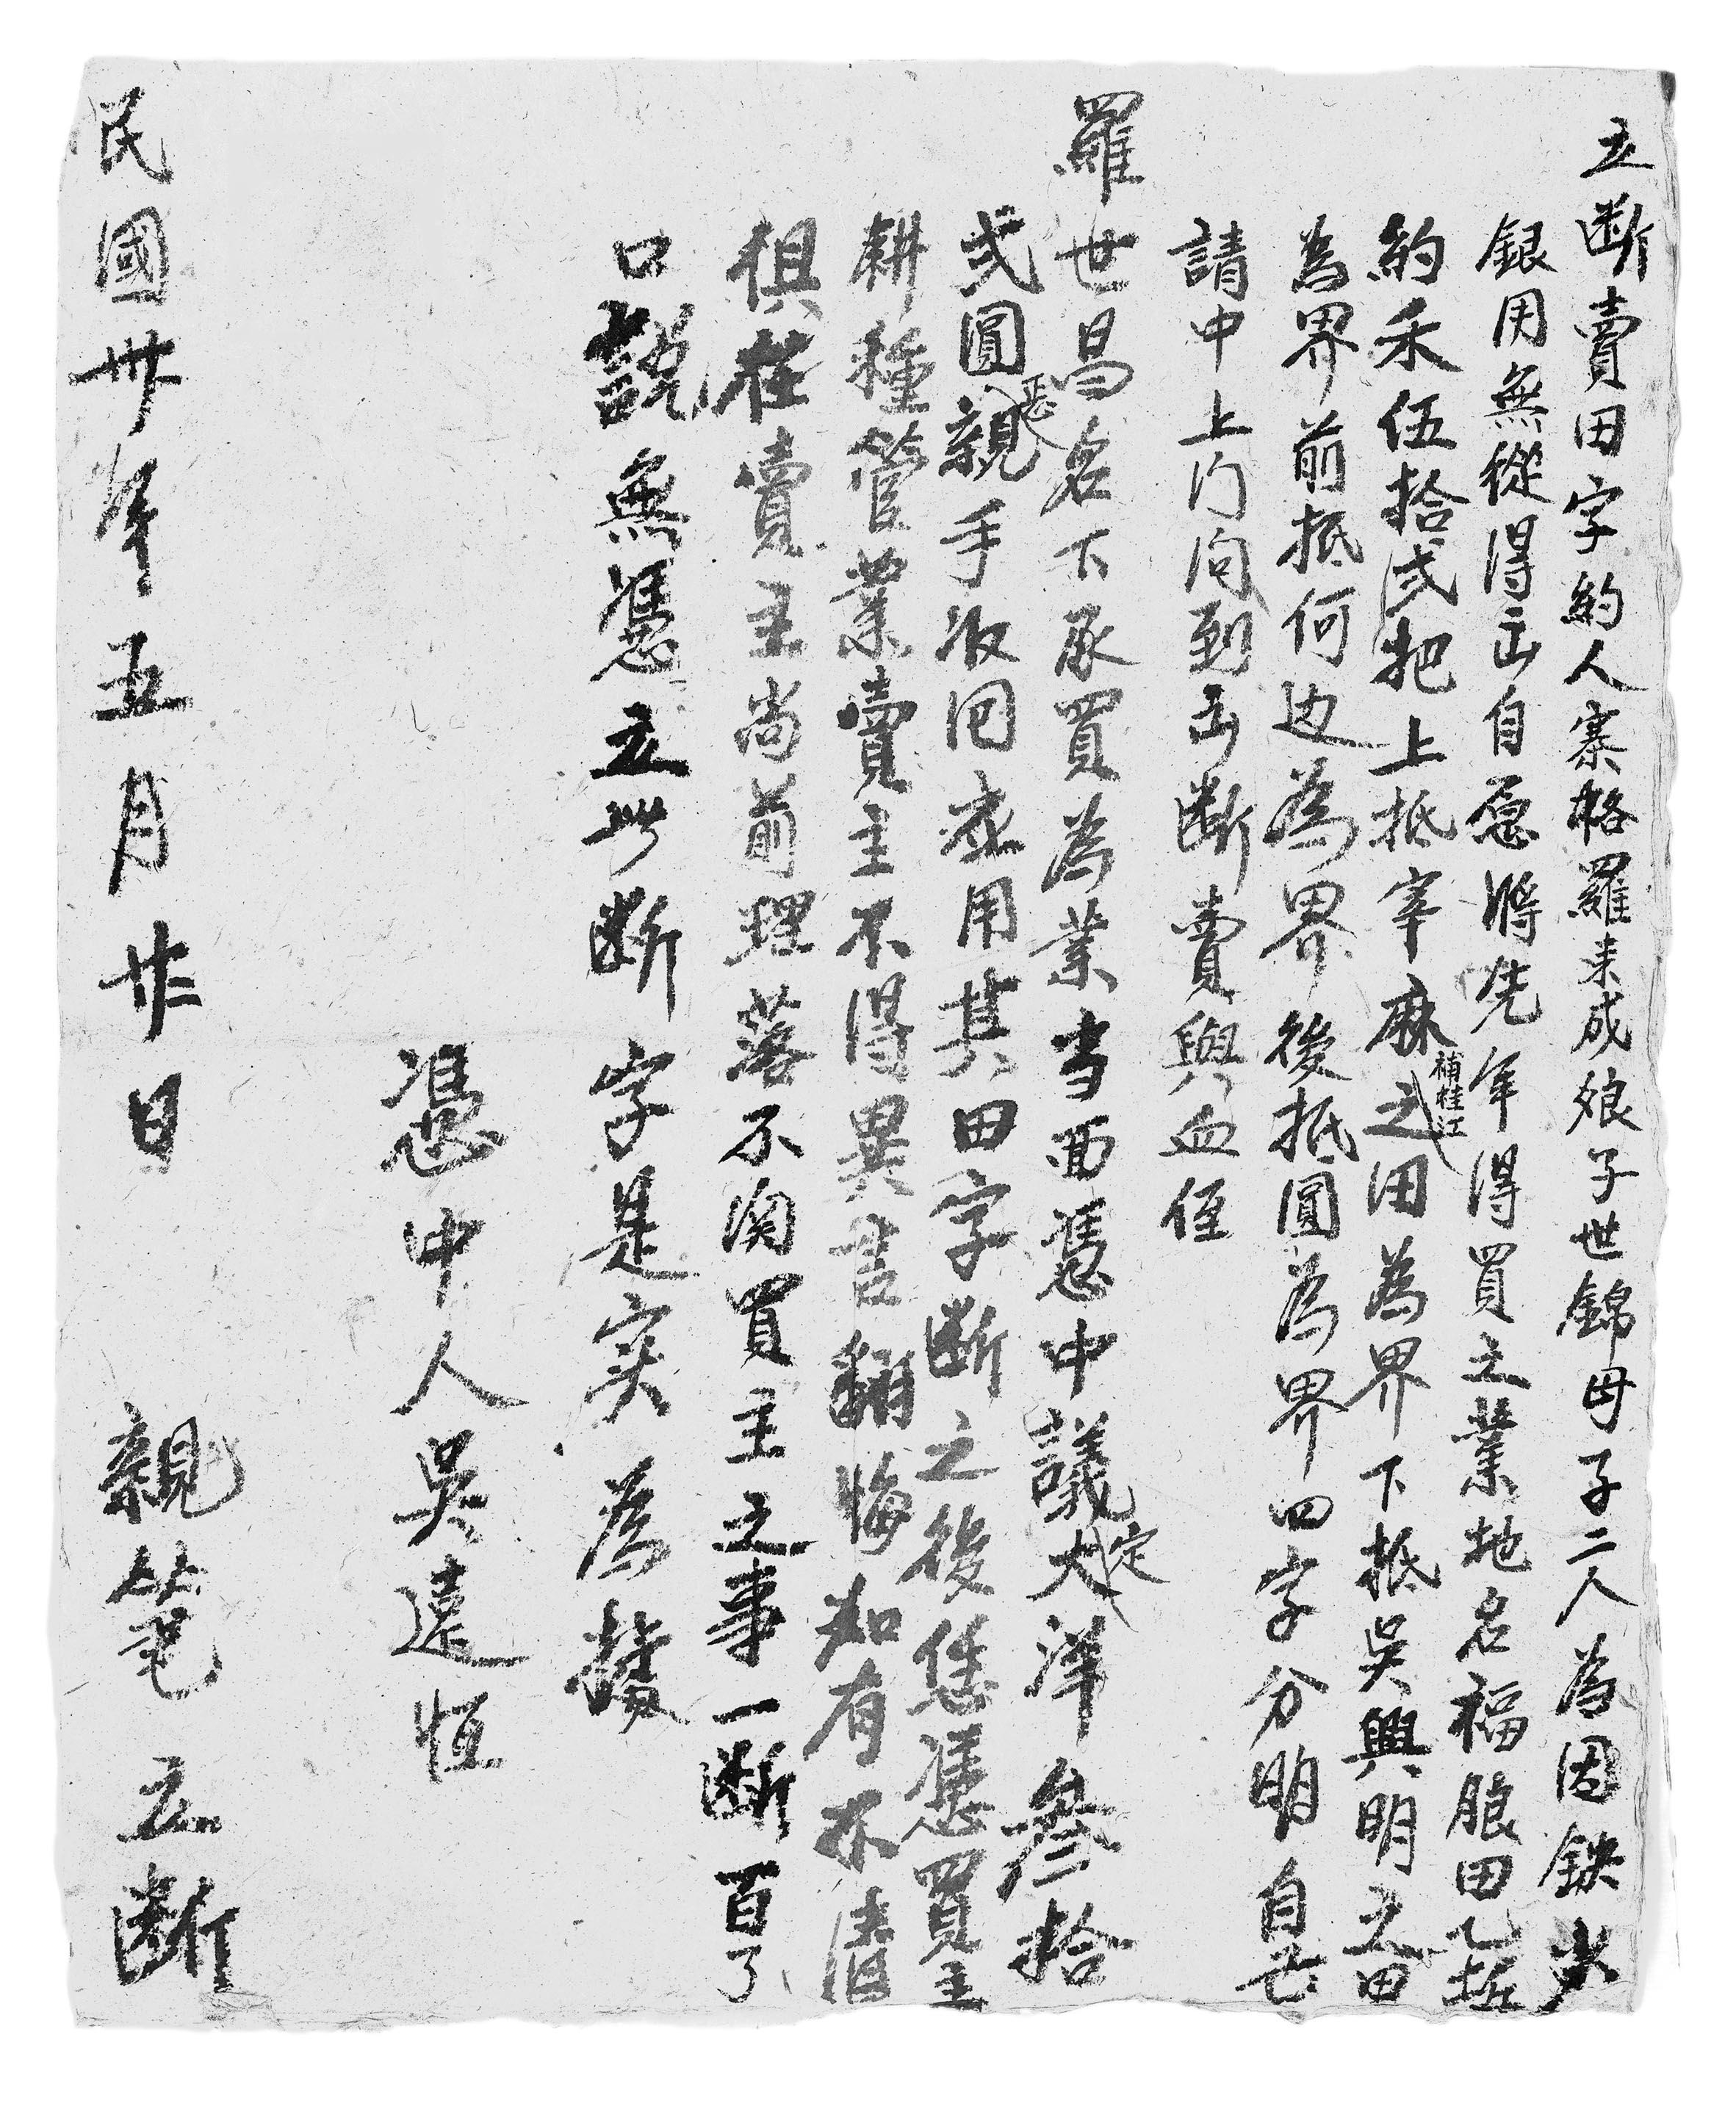 立断賣田字約人寨格羅来成娘子世錦母子二人為因鉄少
銀用無從得出自愿將先年得買之業地名福腺田乙坵
約禾伍拾弍把上抵宰麻補桂江之田為界下抵吳興明之田
為界前抵何边為界後抵圓為界四字分明自己
請中上门问到出断賣與血侄
羅世昌名下承買為業当面憑中議定大洋叁拾
弍圓整親手收回應用其田字断之後恁憑買主
耕種管業賣主不得異言翻悔如有不清
俱在賣主尚前理落不関買主之事一断百了
口説無憑立此断字是实為據
憑中人吳遠恒
民國卅年五月廿日 親筆 立断